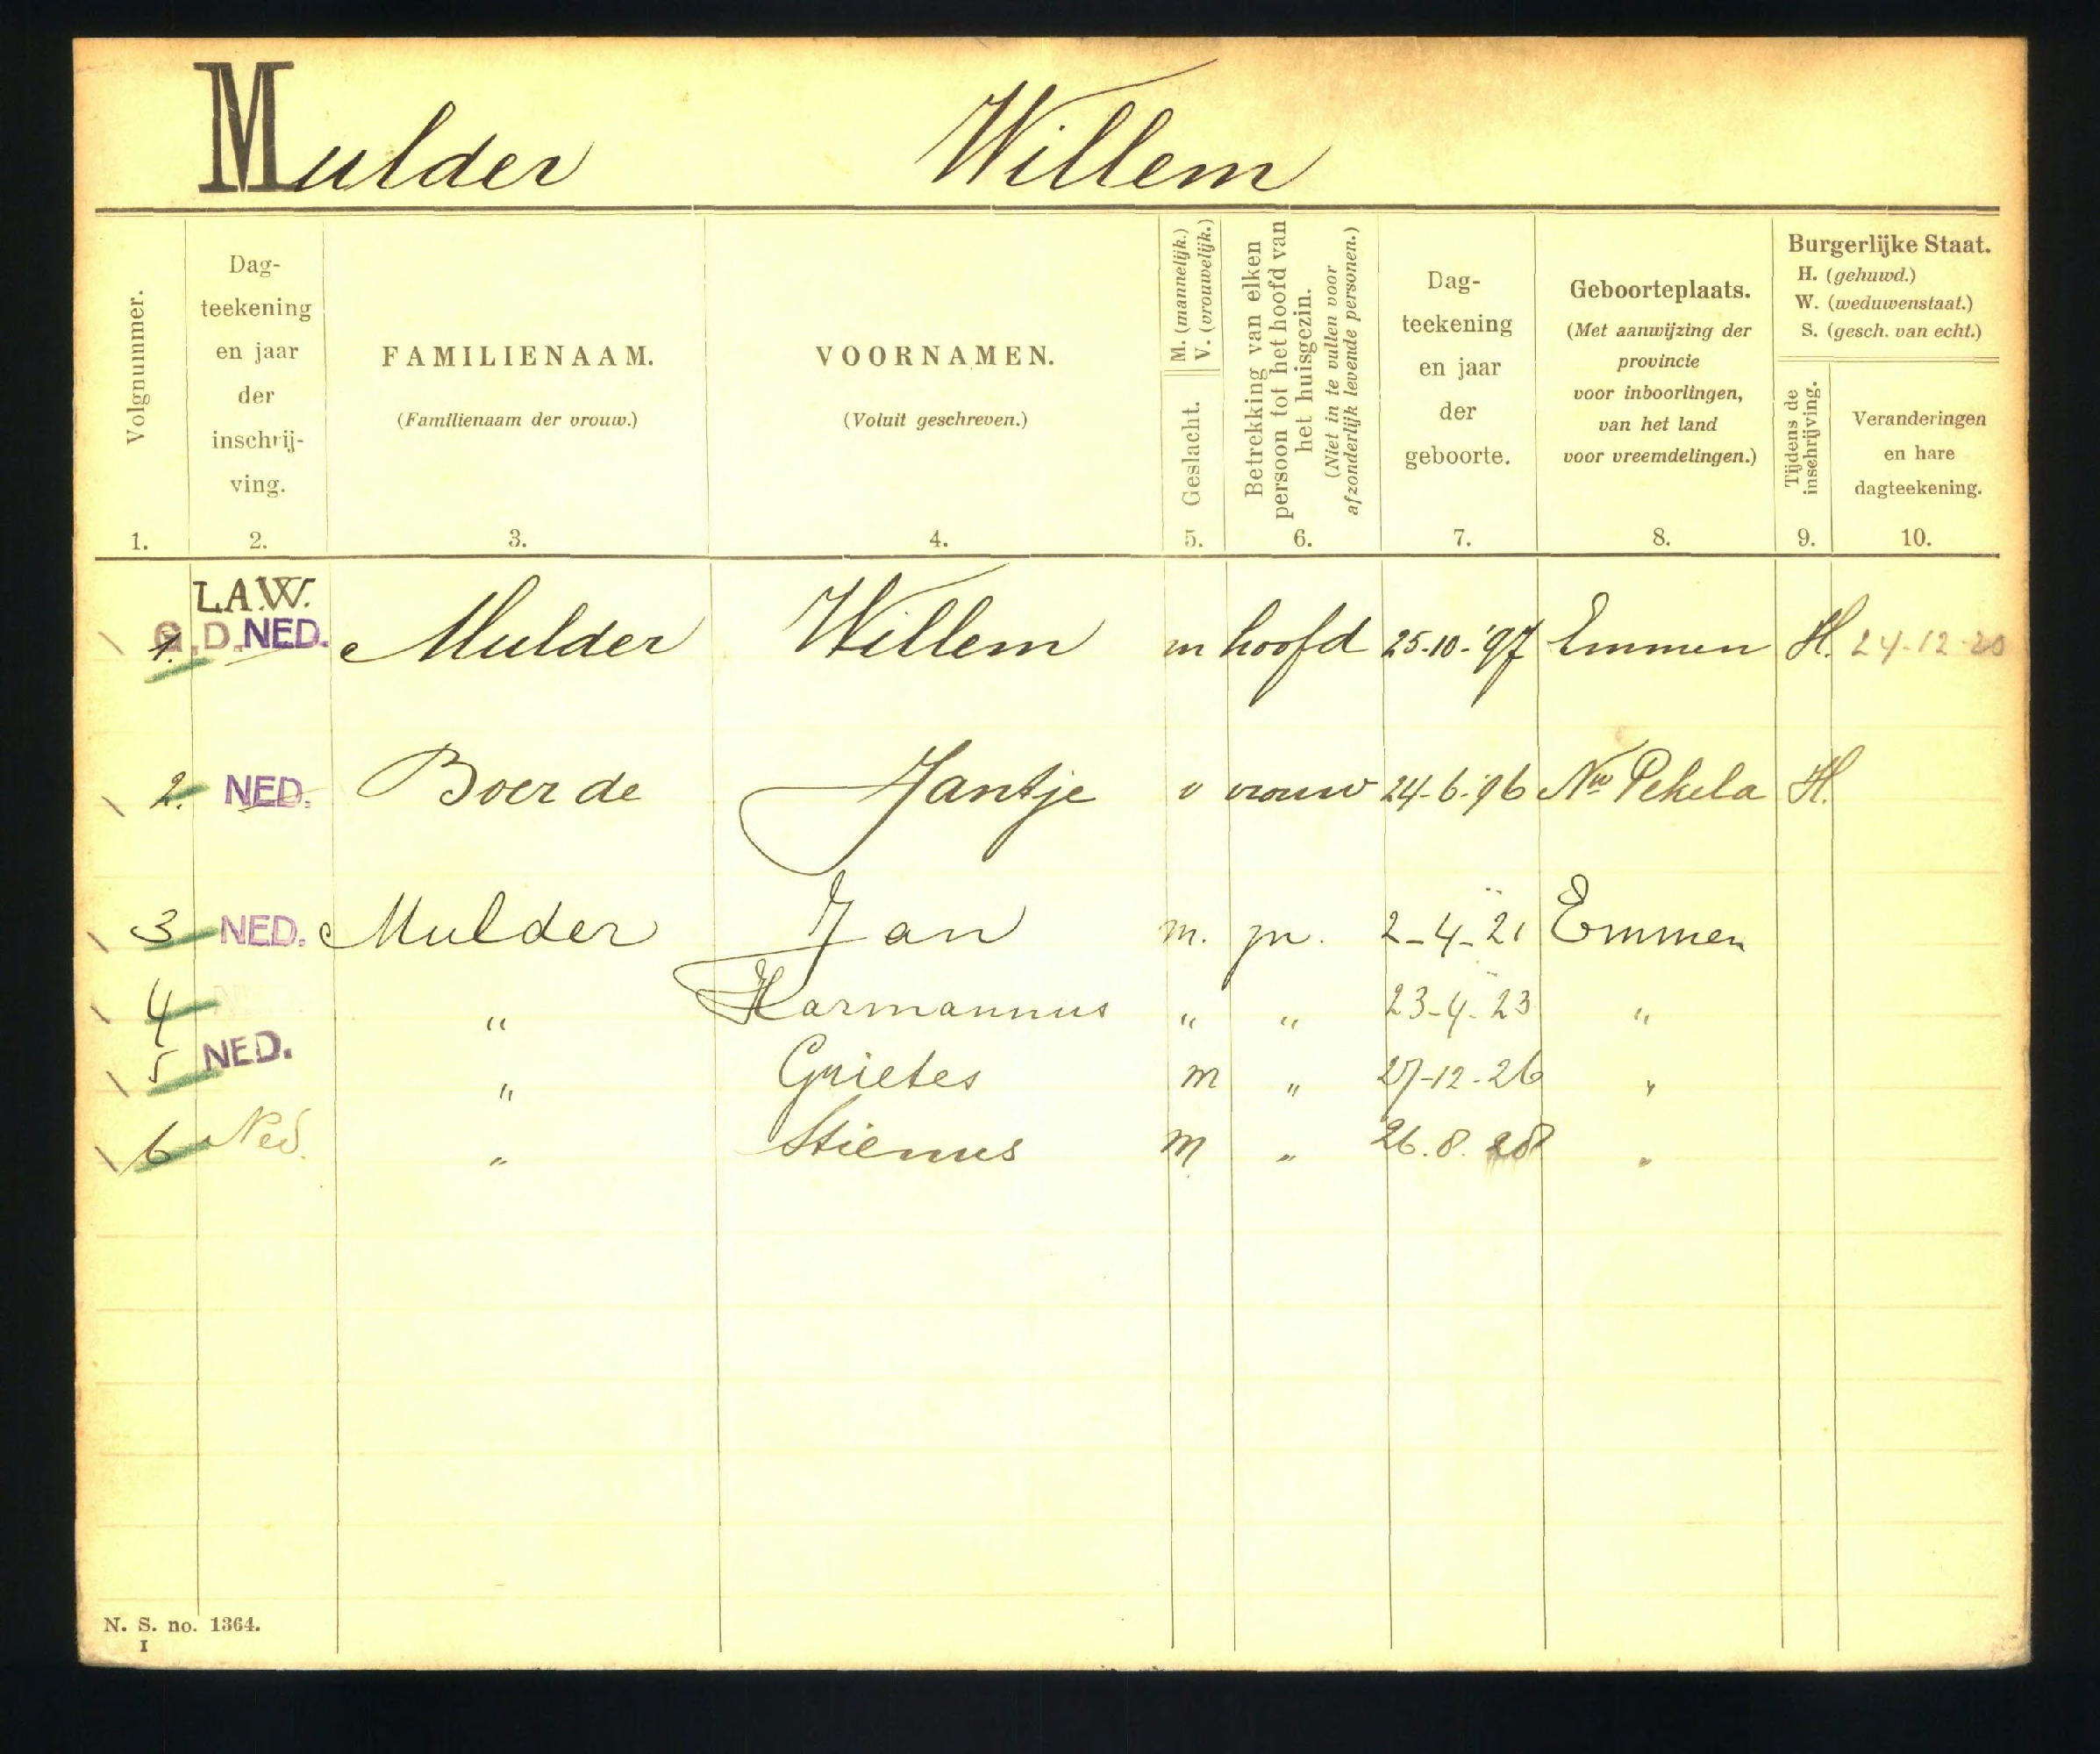 Mulder Willem
Volgnummer.
Dag-
teekening
en jaar
der
inschrij-
ving.
FAMILIENAAM.
(Familienaam der vrouw.)
VOORNAMEN.
(Voluit geschreven.)
M. (mannelijk.)
V. (vrouwelijk.)
Geslacht.
Betrekking van elken
persoon tot het hoofd van
het huisgezin.
(Niet in te vullen voor
afzonderlijk levende personen.)
Dag-
teekening
en jaar
der
geboorte.
Geboorteplaats.
(Met aanwijzing der
provincie
voor inboorlingen,
van het land
voor vreemdelingen.)
Burgerlijke Staat.
H. (gehuwd.)
W. (weduwenstaat.)
S. (gesch. van echt.)
Tijdens de
inschrijving.
Veranderingen
en hare
dagteekening.
1. 2. 3. 4. 5. 6. 7. 8. 9. 10.
L.A.W.
1. G.D. NED. Mulder Willem m hoofd 25-10-'97 Emmen H. 24-12-20
2. NED. Boer de Jantje v vrouw 24-6-'96 Nw Pekela H.
3 NED. Mulder Jan m. zn. 2-4-21 Emmen
4 " Harmannus " " 23-4-23 "
5 NED. " Grietes m " 27-12-26 "
6 Ned. " Stienus m " 26.8.28 "
N. S. no. 1364.
I